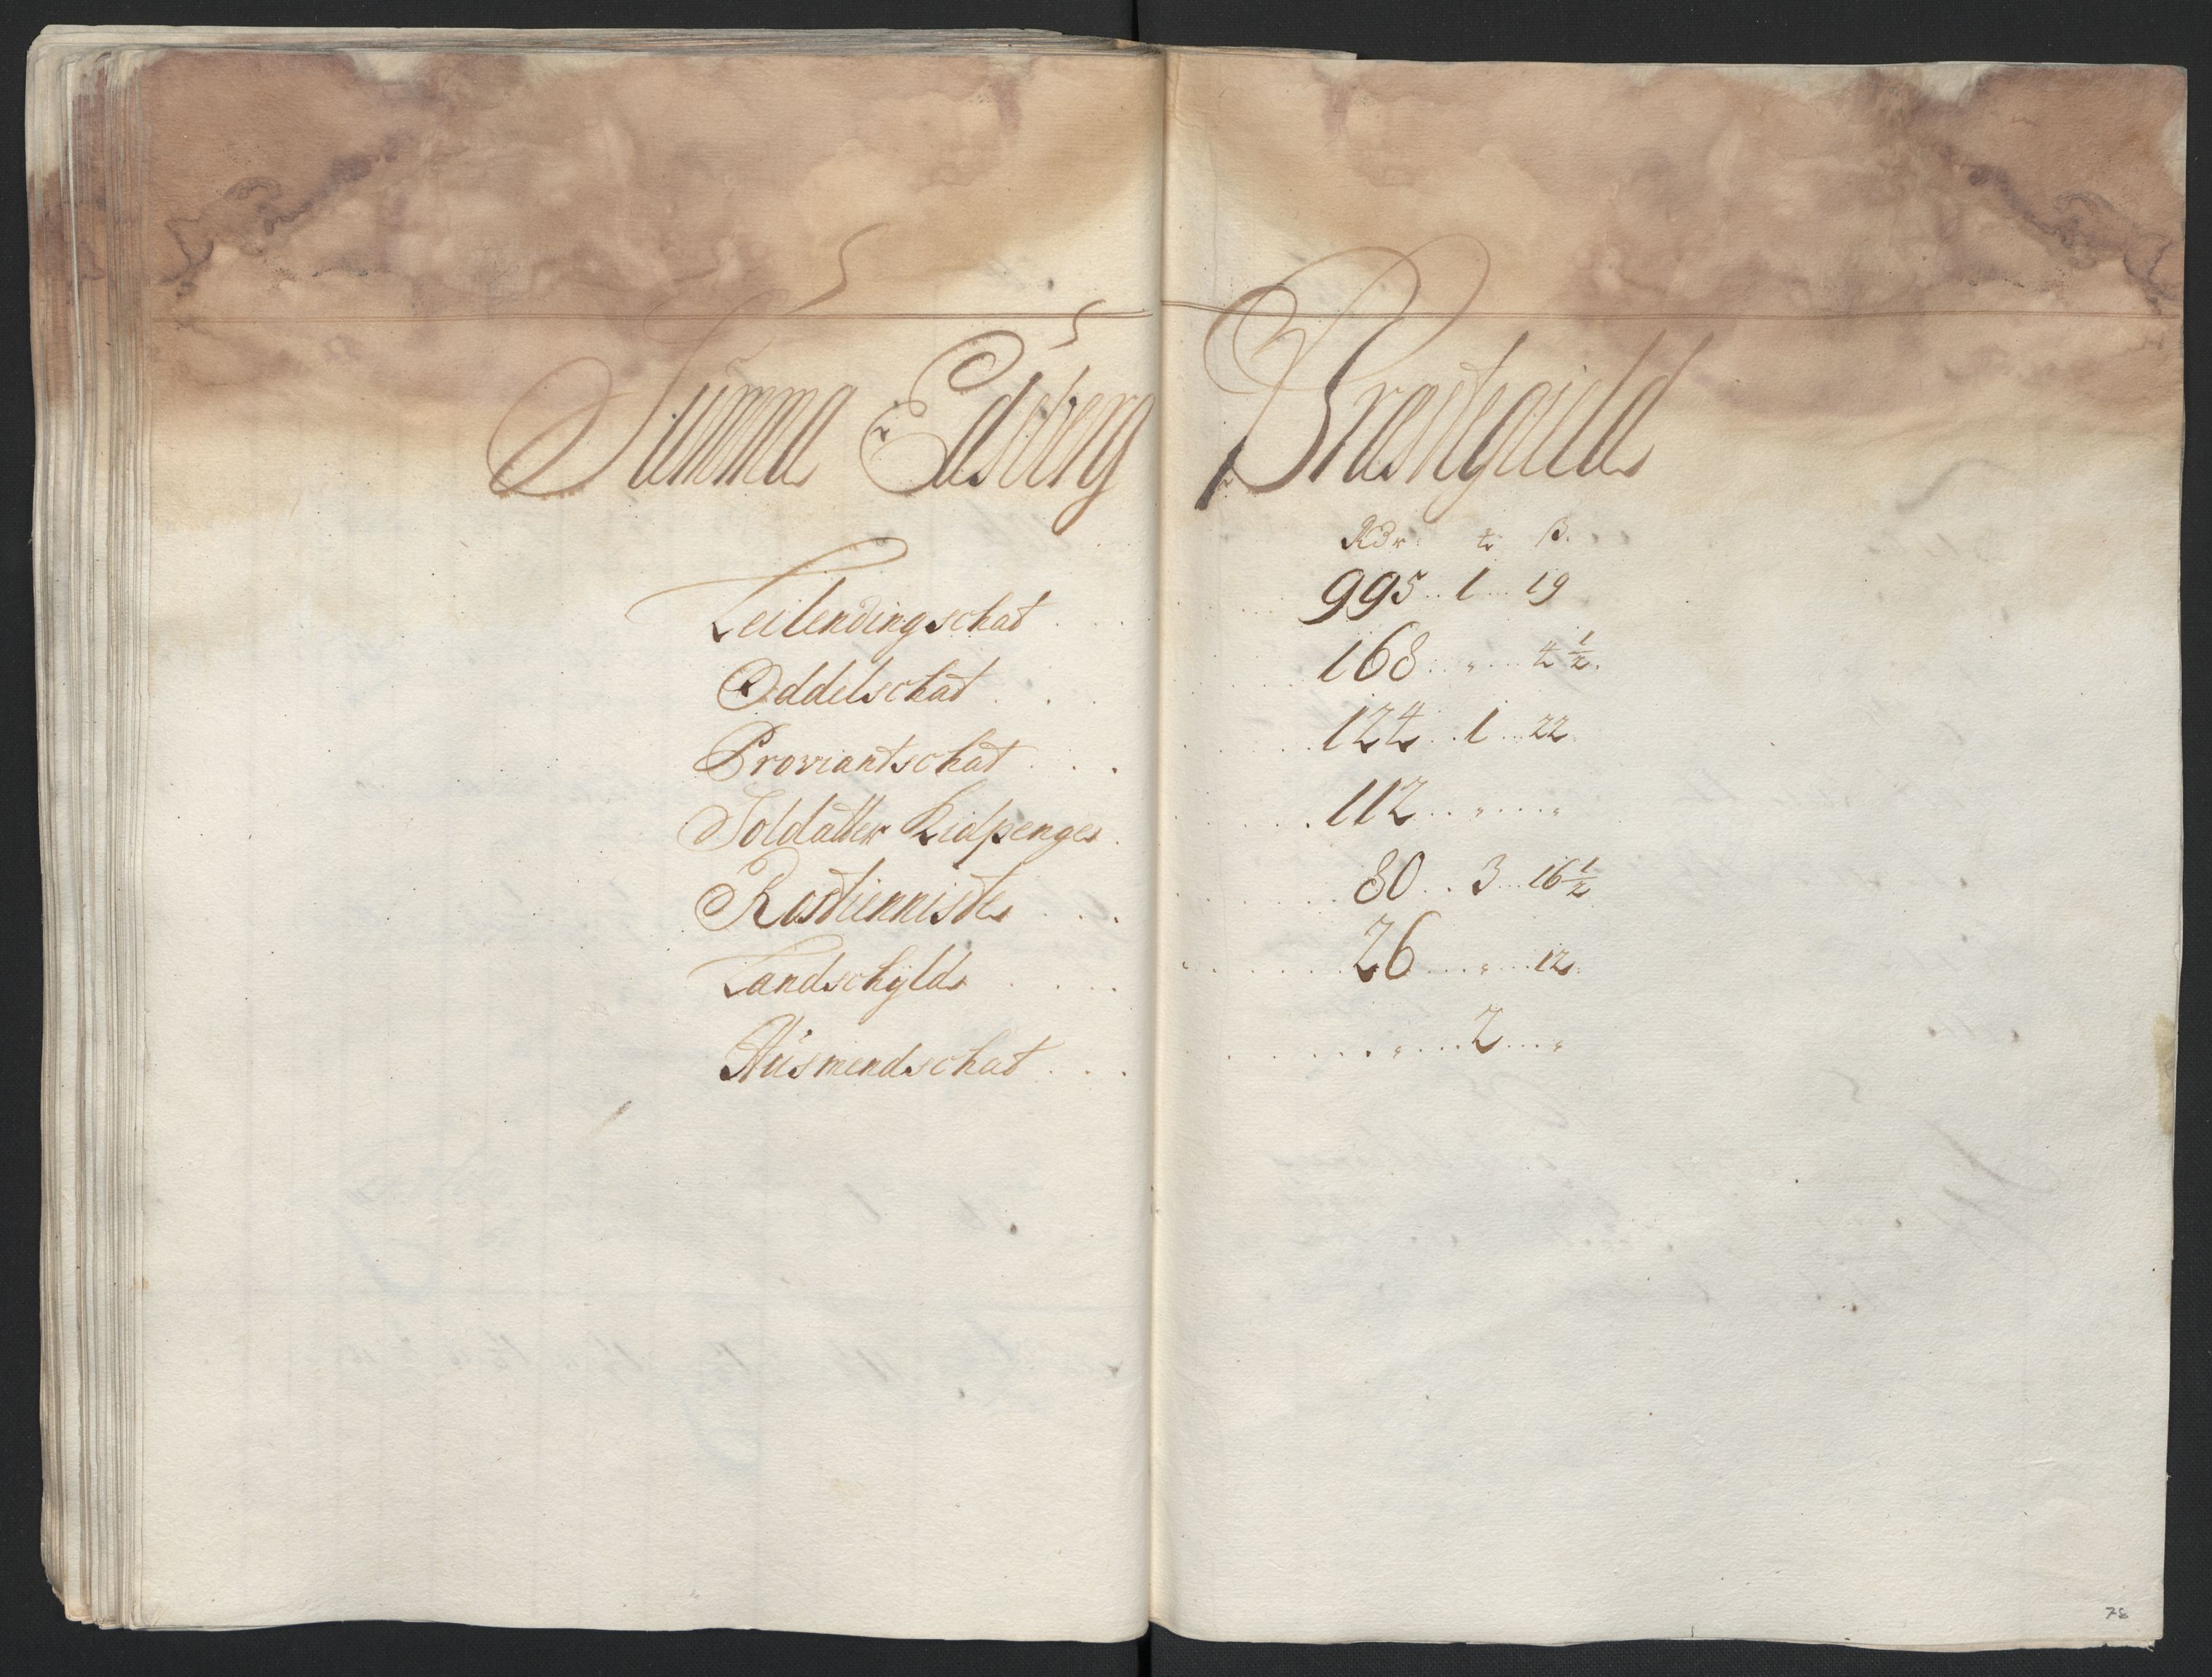 Summa Edsberg Prestegield
Rdr. ß.
Leilendingschat 995 1 19
Oddelschat 168 " 4 1/2
Proviantschat 124 1 22
Soldatter Lidpenge 112 " "
Rostienniste 80 3 16 1/2
Landschyld 26 " 12
Husmendschat " 2 "
78